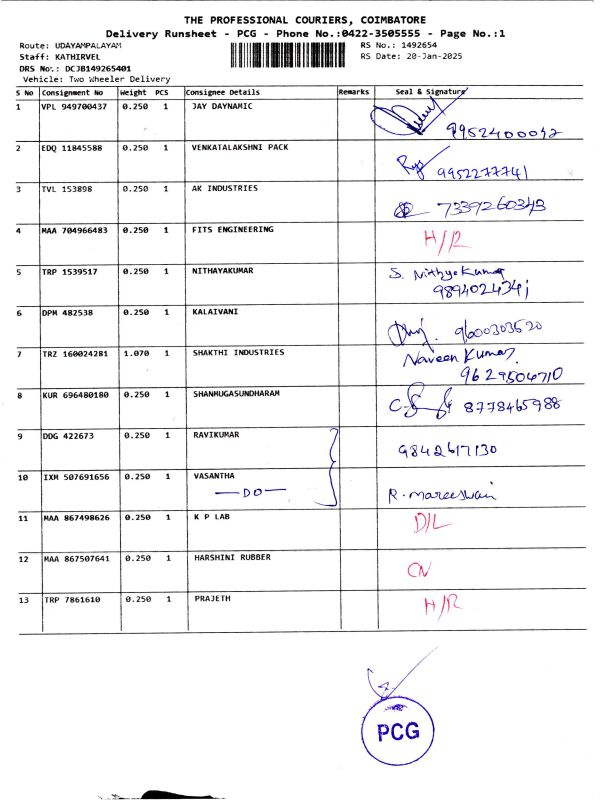 THE PROFESSIONAL COURIERS, COIMBATORE
Delivery Runsheet - PCG - Phone No.:0422-3505555 - Page No.:1
Route: UDAYAMPALAYAM RS No.: 1492654
Staff: KATHIRVEL RS Date: 20-Jan-2025
DRS No.: DCJB149265401
Vehicle: Two Wheeler Delivery
S No Consignment No Weight PCS Consignee Details Remarks Seal & Signature
1 VPL 949700437 0.250 1 JAY DAYNAMIC
9952400042
2 EDQ 11845588 0.250 1 VENKATALAKSHNI PACK
9952277741
3 TVL 153898 0.250 1 AK INDUSTRIES
7339260343
4 MAA 704966483 0.250 1 FITS ENGINEERING H/R
5 TRP 1539517 0.250 1 NITHAYAKUMAR S. Nithyekumar
9894024341
6 DPM 482538 0.250 1 KALAIVANI
9600303520
7 TRZ 160024281 1.070 1 SHAKTHI INDUSTRIES Naveen Kumar
9629504710
8 KUR 696480180 0.250 1 SHANMUGASUNDHARAM
8778465988
9 DDG 422673 0.250 1 RAVIKUMAR
9842617130
10 IXM 507691656 0.250 1 VASANTHA
DO R. mareeswari
11 MAA 867498626 0.250 1 K P LAB D/L
12 MAA 867507641 0.250 1 HARSHINI RUBBER CN
13 TRP 7861610 0.250 1 PRAJETH H/R
PCG